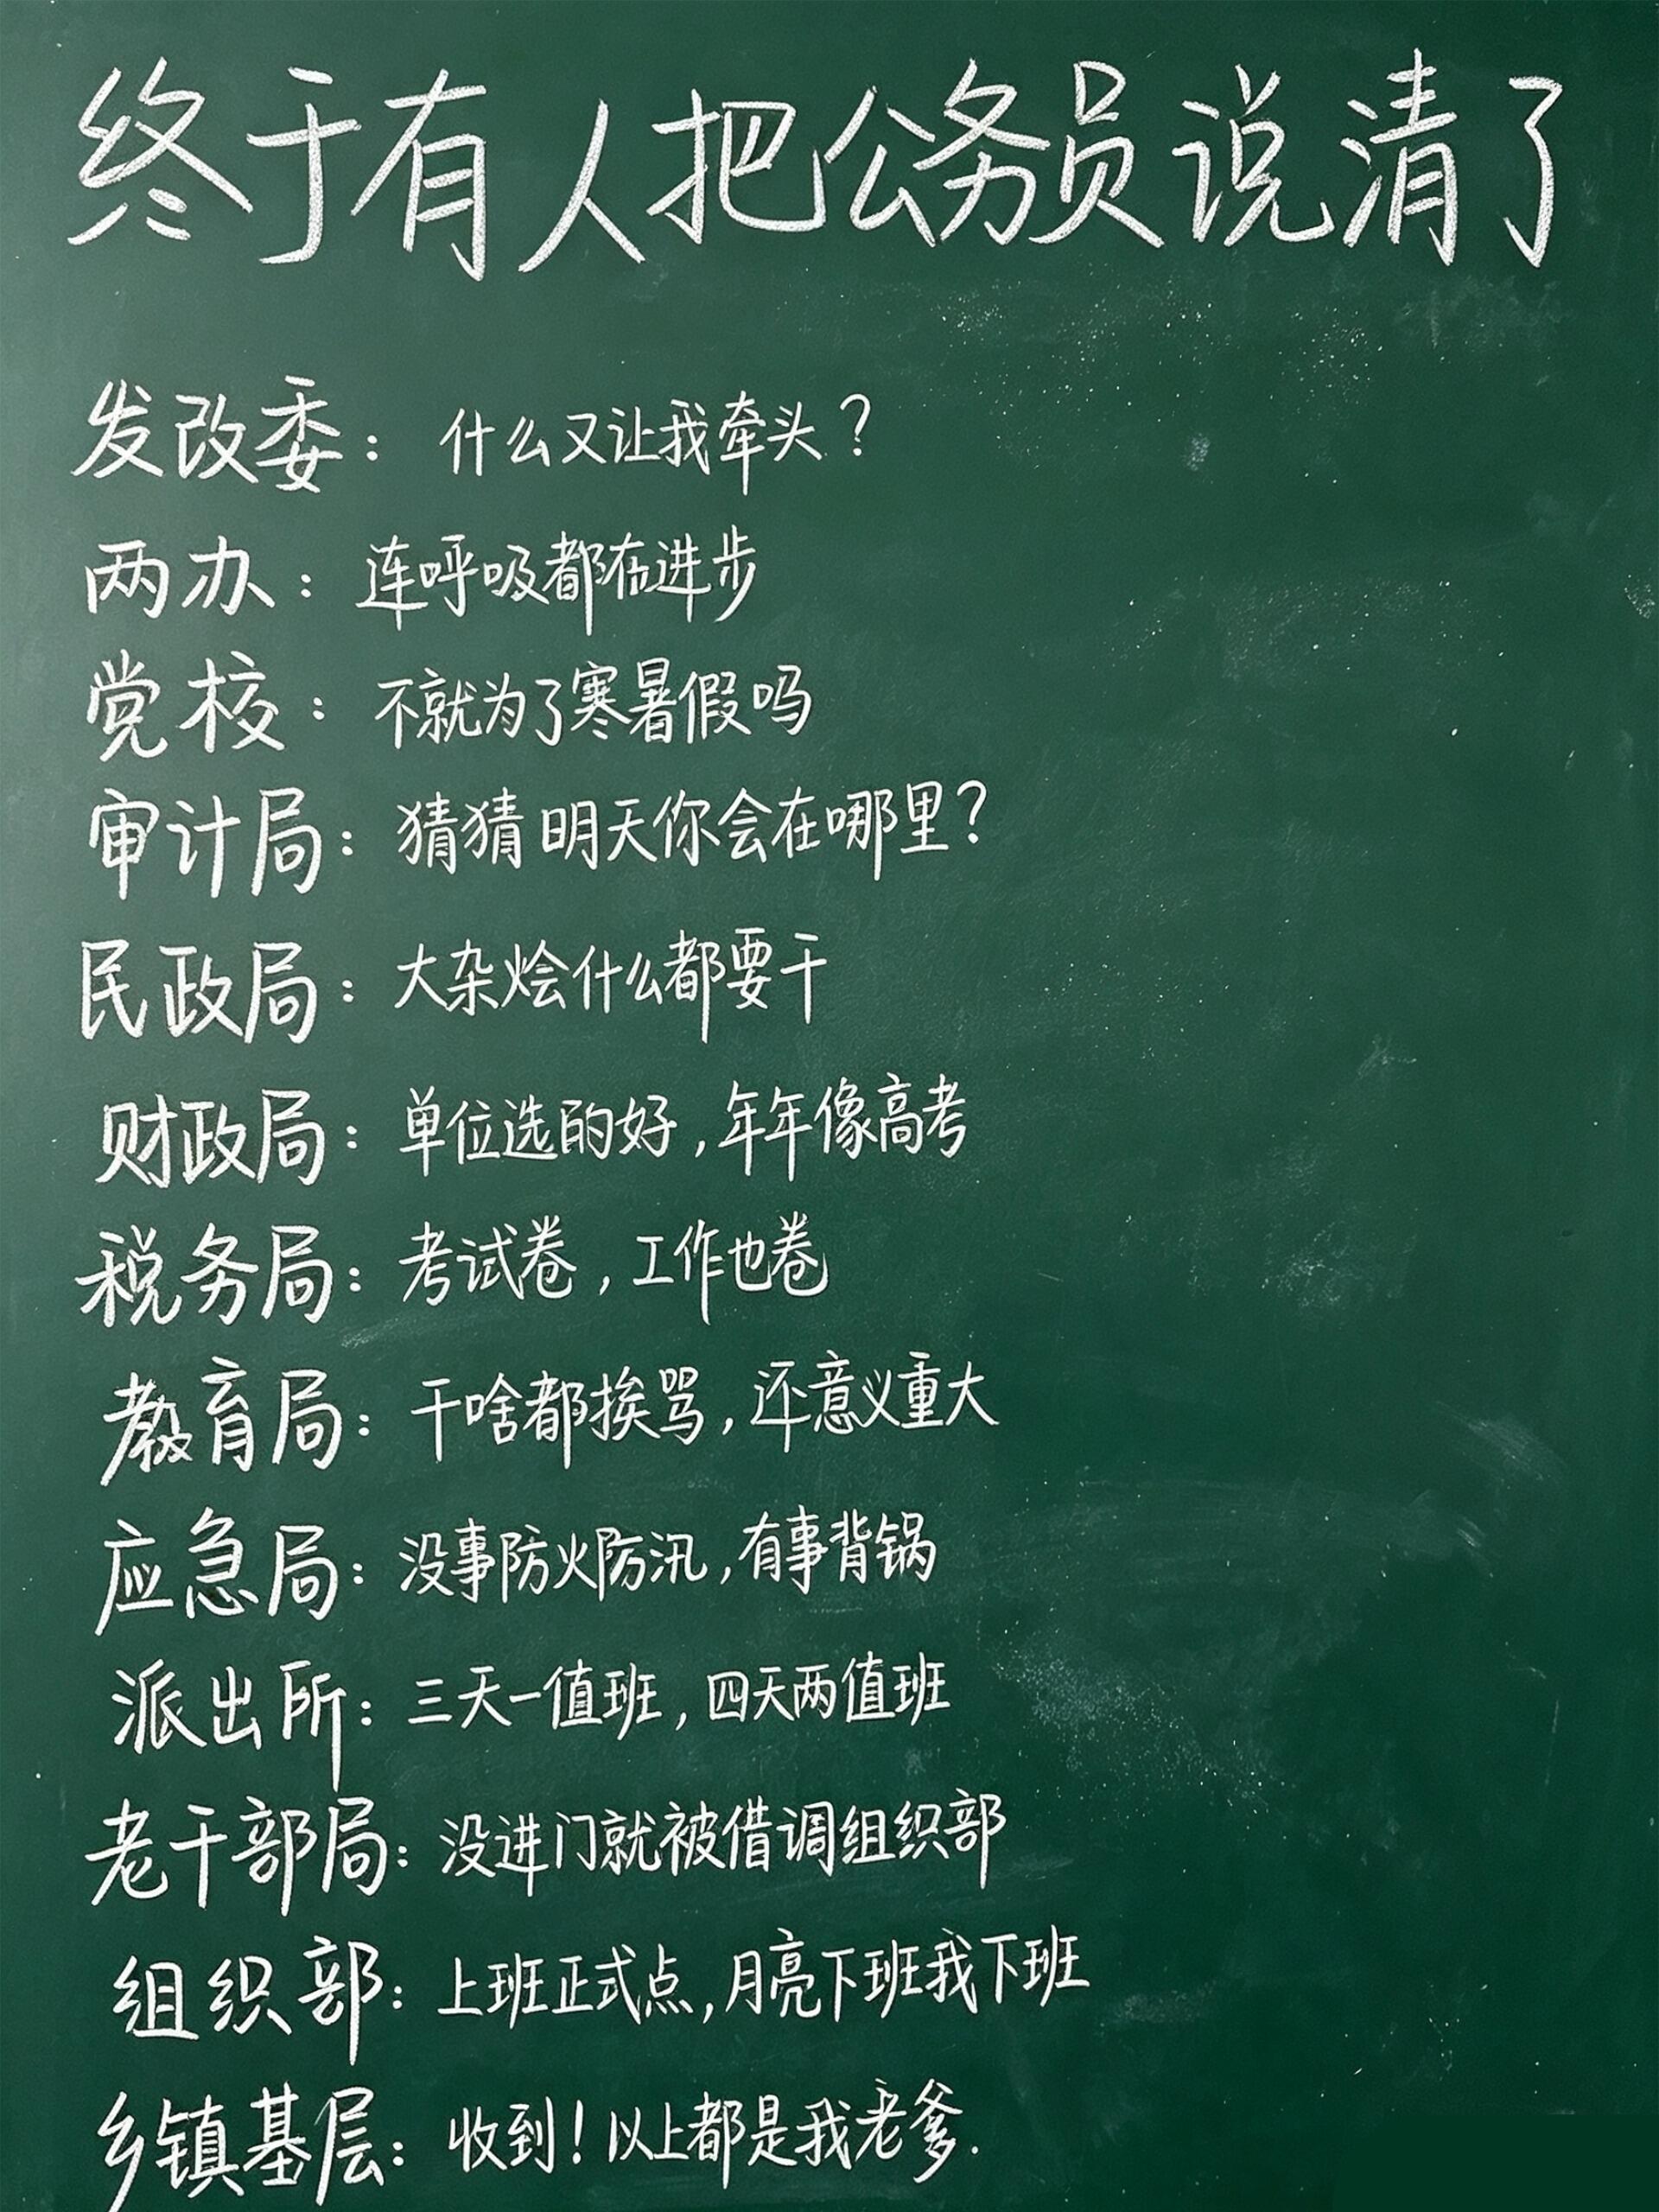 终于有人把公务员说清了
发改委：什么又让我牵头？
两办：连呼吸都在进步
党校：不就为了寒暑假吗
审计局：猜猜明天你会在哪里？
民政局：大杂烩什么都要干
财政局：单位选的好，年年像高考
税务局：考试卷，工作也卷
教育局：干啥都挨骂，还意义重大
应急局：没事防火防汛，有事背锅
派出所：三天一值班，四天两值班
老干部局：没进门就被借调组织部
组织部：上班正式点，月亮下班我下班
乡镇基层：收到！以上都是我老爹.